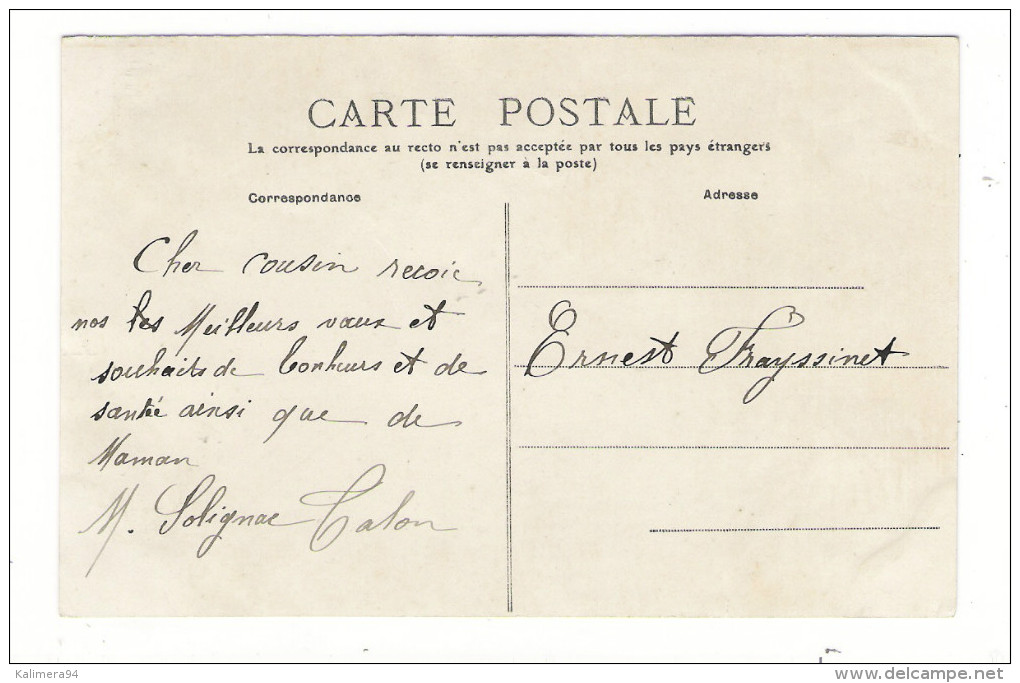 CARTE POSTALE
La correspondance au recto n'est pas acceptée par tous les pays étrangers
(se renseigner à la poste)
Correspondance
Adresse
Cher cousin recoie
nos les Meilleurs vœux et
souhaits de bonheurs et de
santée ainsi que de
Maman
M. Solignac Calon
Ernest Frayssinet
Kalimera94
www.delcampe.net